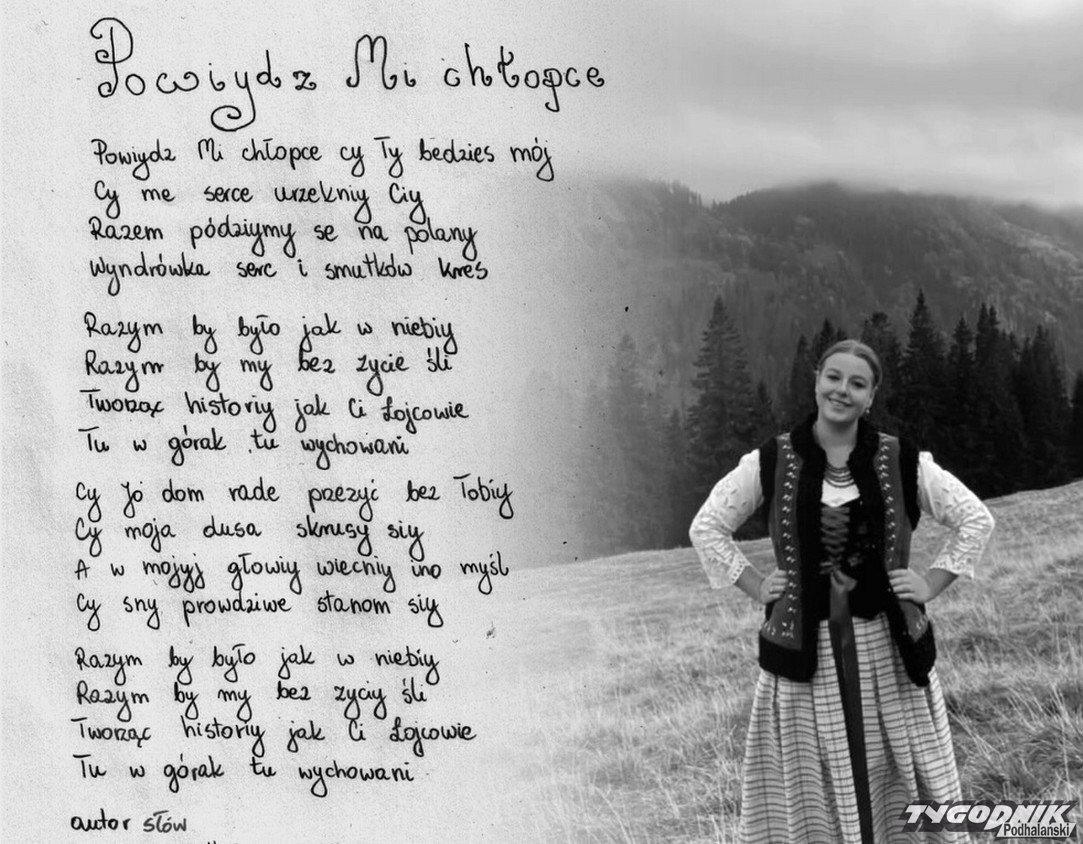 Powiydz Mi chłopce
Powiydz Mi chłopce cy Ty bedzies mój
Cy me serce urzekniy Ciy
Razem pódziymy se na polany
Wyndrówka serc i smutków kres
Razym by było jak w niebiy
Razym by my bez zycie śli
Tworząc historiy jak Ci Łojcowie
Tu w górak tu wychowani
Cy Jo dom rade przezyć bez Tobiy
Cy moja dusa skrusy siy
A w mojyj głowiy wiecniy ino myśl
Cy sny prowdziwe stanom siy
Razym by było jak w niebiy
Razym by my bez zyciy śli
Tworząc historiy jak Ci Łojcowie
Tu w górak tu wychowani
autor słów
TYGODNIK
Podhalański